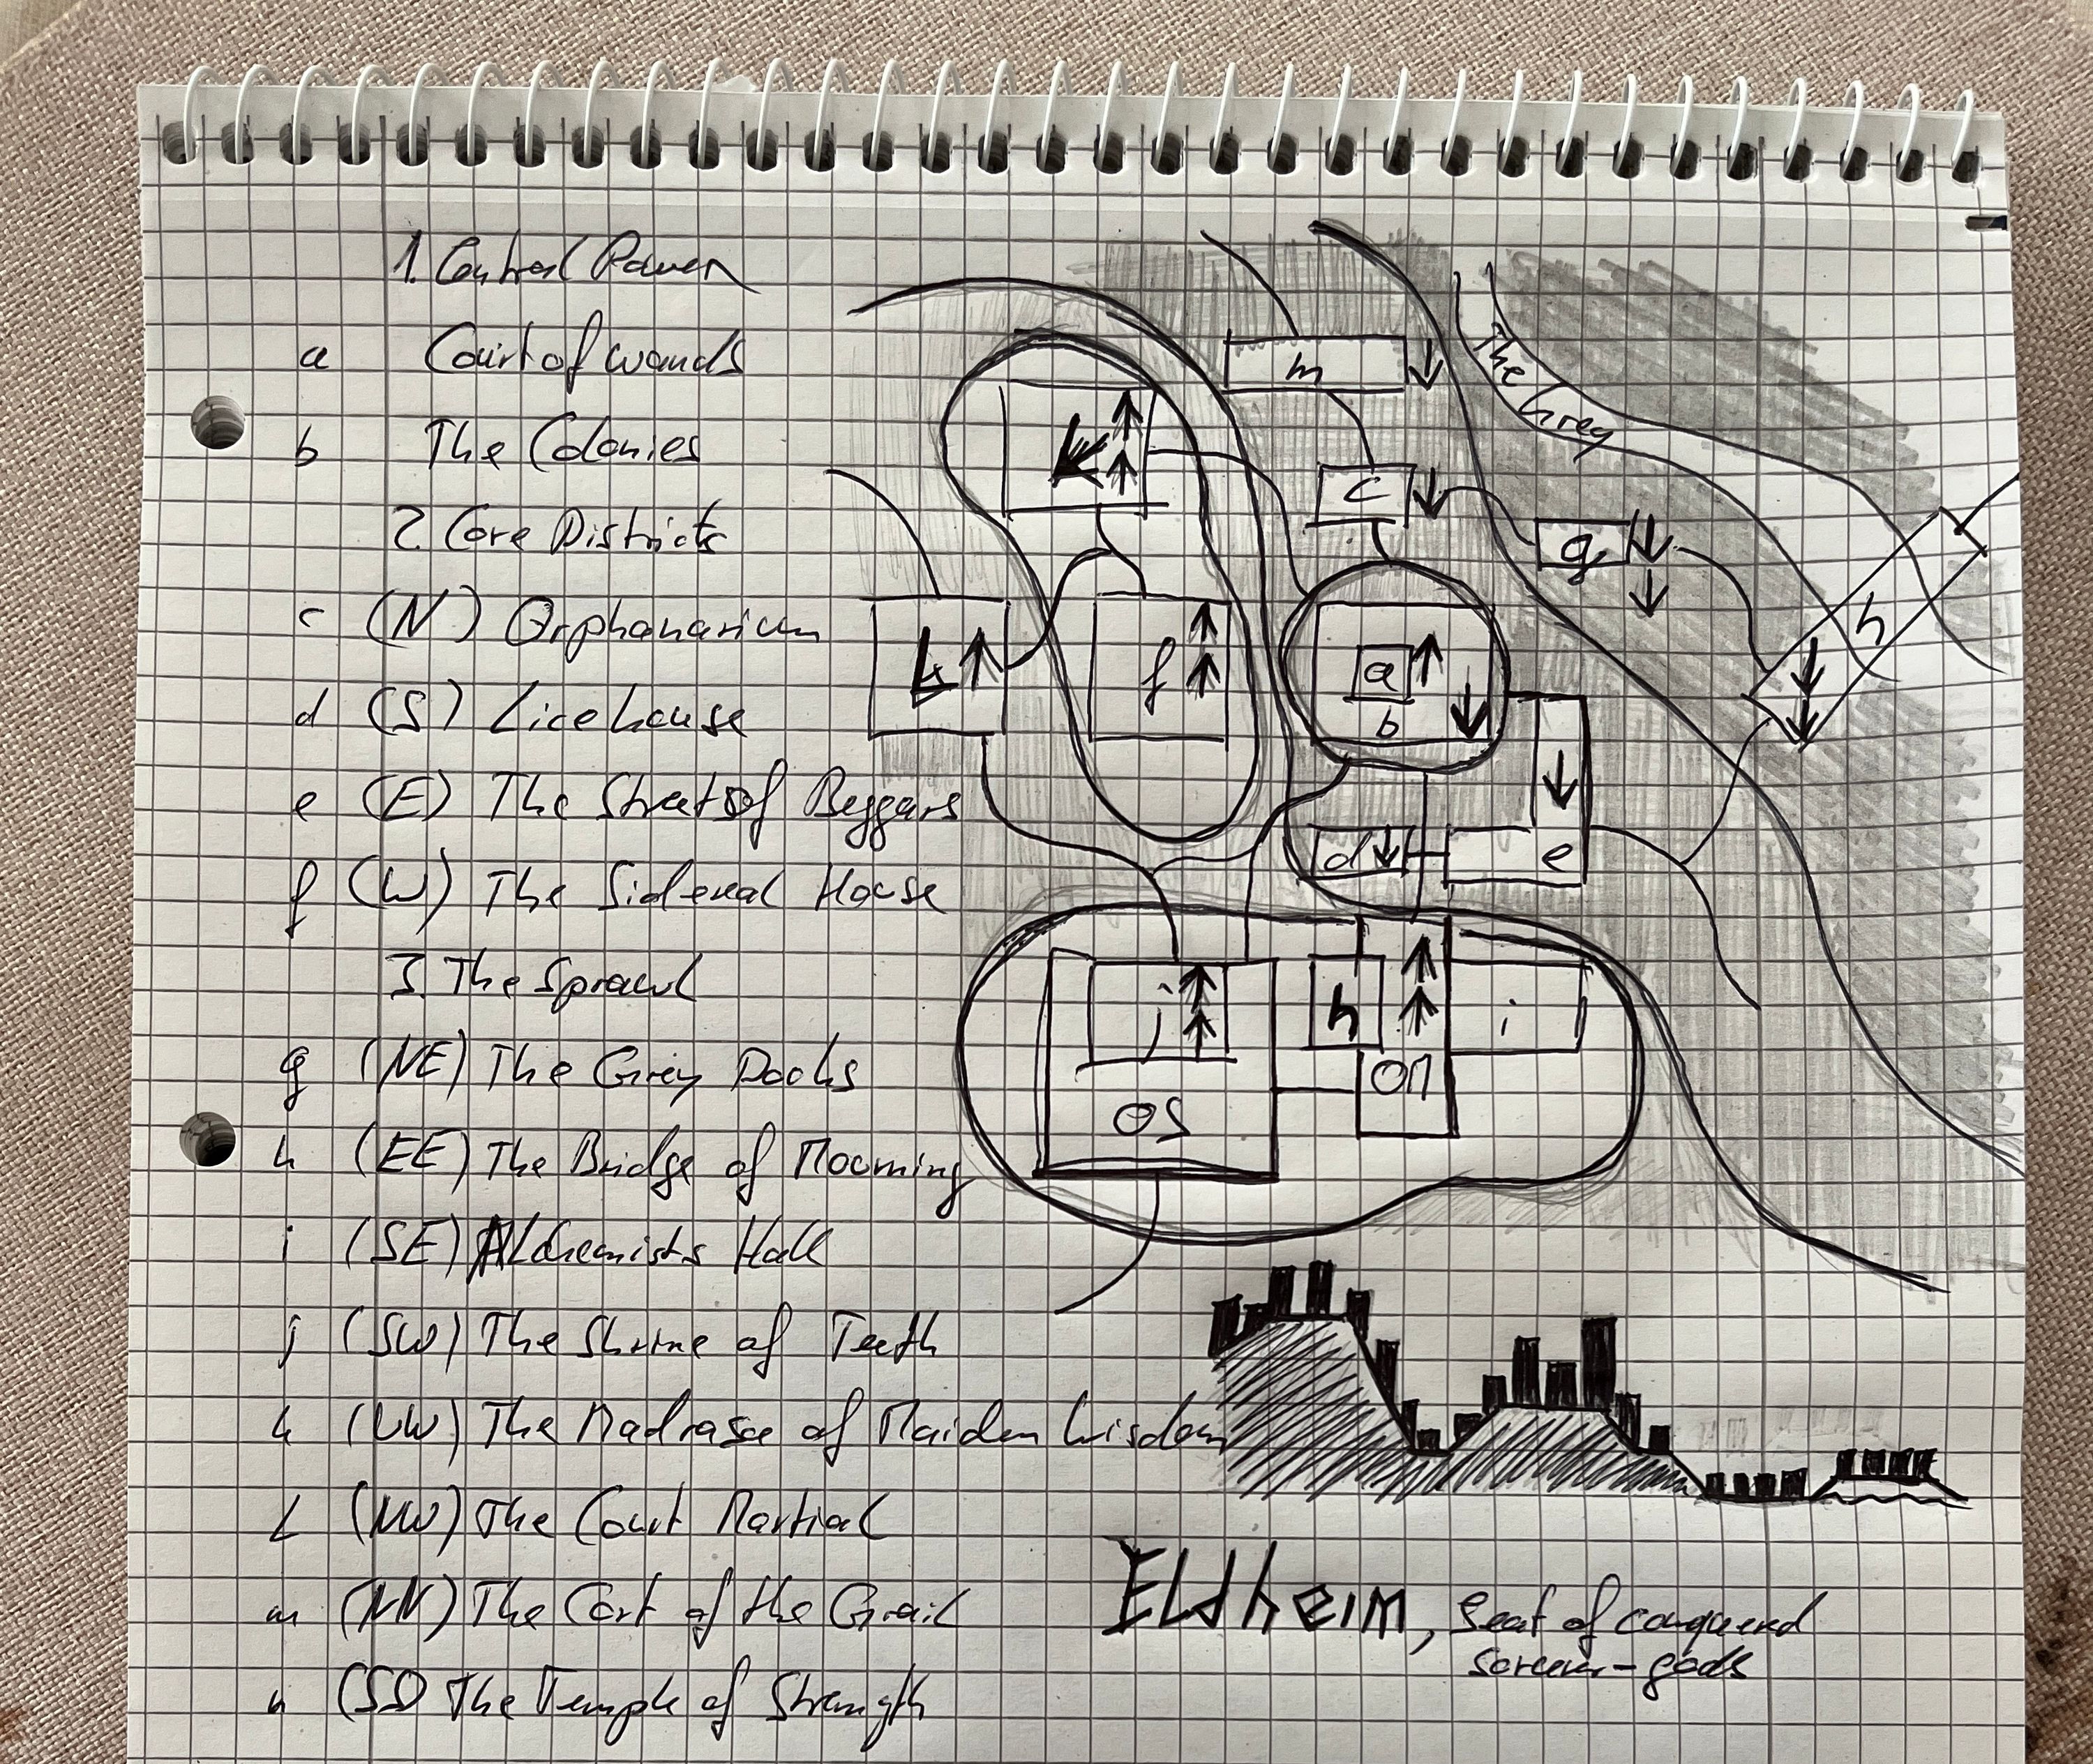 1. Central Power
a Court of Wands
b The Colonies
2. Core Districts
c (N) Orphanarium
d (S) Licehouse
e (E) The Street of Beggars
f (W) The Sidereal House
3. The Sprawl
g (NE) The Grey Docks
h (EE) The Bridge of Mourning
i (SE) Alchemists Hall
j (SW) The Shrine of Teeth
k (WW) The Madrasa of Maiden Wisdom
L (NW) The Court Martial
m (NN) The Cort of the Grail
n (SS) The Temple of Strength
The Grey
m
k
c
g
h
L
f
a
b
d
e
j
n
i
OS
Eldheim, Seat of conquered
sorcerer-gods